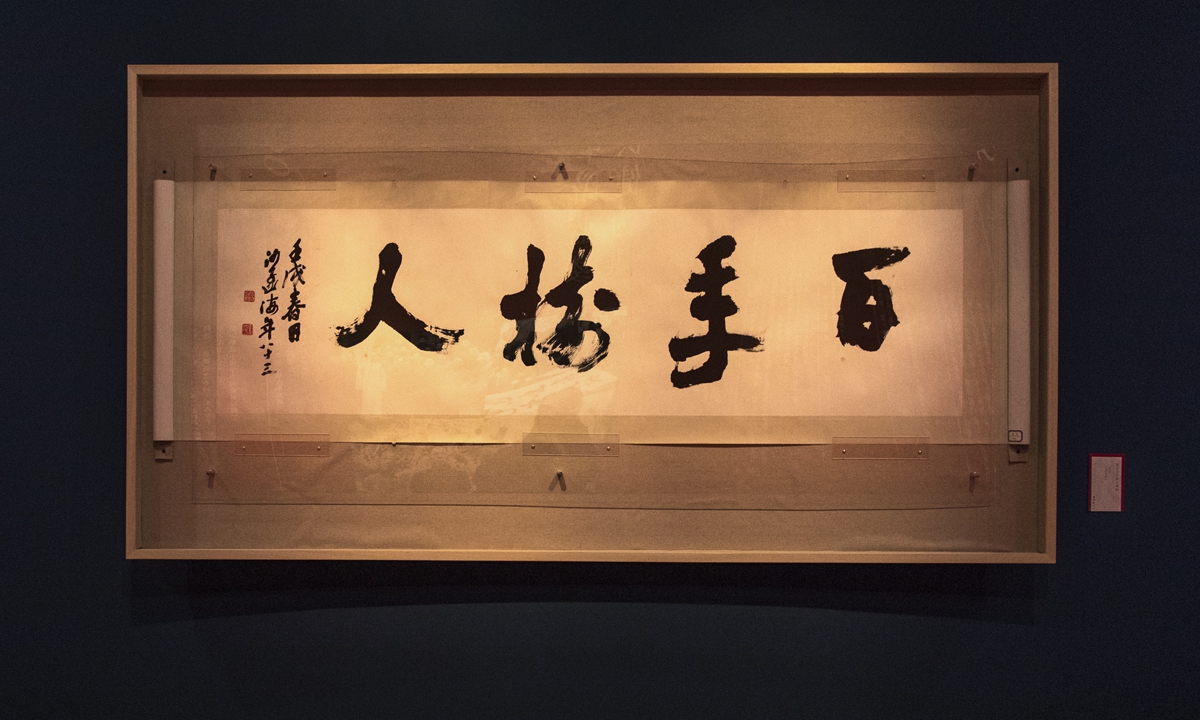 百年樹人
壬戌春日
沙孟海年八十三